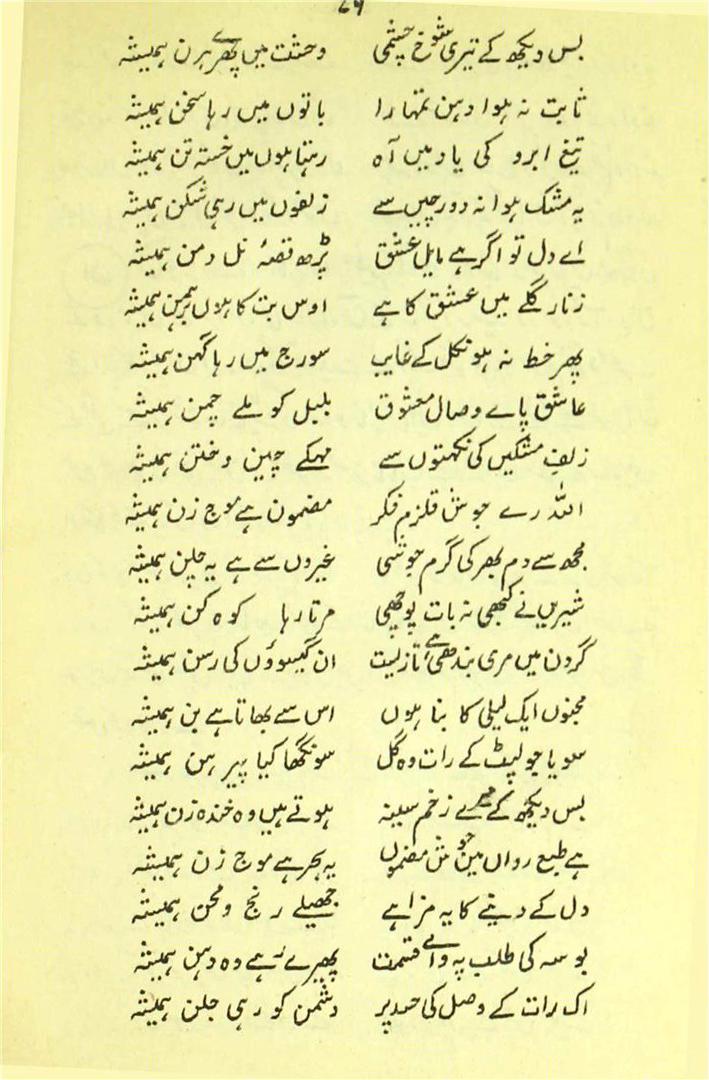 بس دیکھ کے تیری شوخ چشمی وحشت میں پھرے ہرن ہمیشہ
ثابت نہ ہوا دہن تمہارا باتوں میں رہا سخن ہمیشہ
تیغ ابرو کی یاد میں آہ رہتا ہوں میں خستہ تن ہمیشہ
یہ مشک ہوا نہ دور چیں سے زلفوں میں رہی شکن ہمیشہ
اے دل تو اگر ہے مایل عشق پڑھ قصۂ نل دمن ہمیشہ
زنار گلے میں عشق کا ہے اوس بت کا ہوں برہمن ہمیشہ
پھر خط نہ ہو نکل کے غایب سورج میں رہا گہن ہمیشہ
عاشق پاے وصال معشوق بلبل کو ملے چمن ہمیشہ
زلف مشکیں کی نکہتوں سے مہکے چین و ختن ہمیشہ
اللہ رے جوش قلزم فکر مضمون ہے موج زن ہمیشہ
مجھ سے دم بھر کی گرم جوشی غیروں سے ہے یہ چلن ہمیشہ
شیریں نے کبھی نہ بات پوچھی مرتا رہا کوہ کن ہمیشہ
گردن میں مری بندھی ہے تا زیست ان گیسوؤں کی رسن ہمیشہ
مجنوں ایک لیلیٰ کا بنا ہوں اس سے بھاتا ہے بن ہمیشہ
سویا جو لپٹ کے رات وہ گل سونگھا کیا پیرہن ہمیشہ
بس دیکھ کے میرے زخم سینہ ہوتے ہیں وہ خندہ زن ہمیشہ
ہے طبع رواں میں جوش مضموں یہ بحر ہے موج زن ہمیشہ
دل کے دینے کا یہ مزا ہے جھیلے رنج و محن ہمیشہ
بوسہ کی طلب پہ واے قسمت پھیرے ہے وہ دہن ہمیشہ
اک رات کے وصل کی حسد پر دشمن کو رہی جلن ہمیشہ